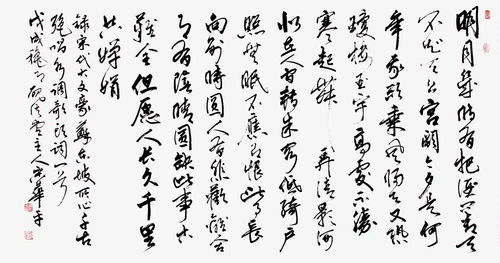 明月幾時有把酒問青天
不知天上宮闕今夕是何
年我欲乘風歸去又恐
瓊樓玉宇高處不勝
寒起舞弄清影何
似在人間轉朱閣低綺戶
照無眠不應有恨何事長
向別時圓人有悲歡離合
月有陰晴圓缺此事古
難全但愿人長久千里
共嬋娟
錄宋代大文豪蘇東坡千古
絕唱水調歌頭詞一首
戊戌